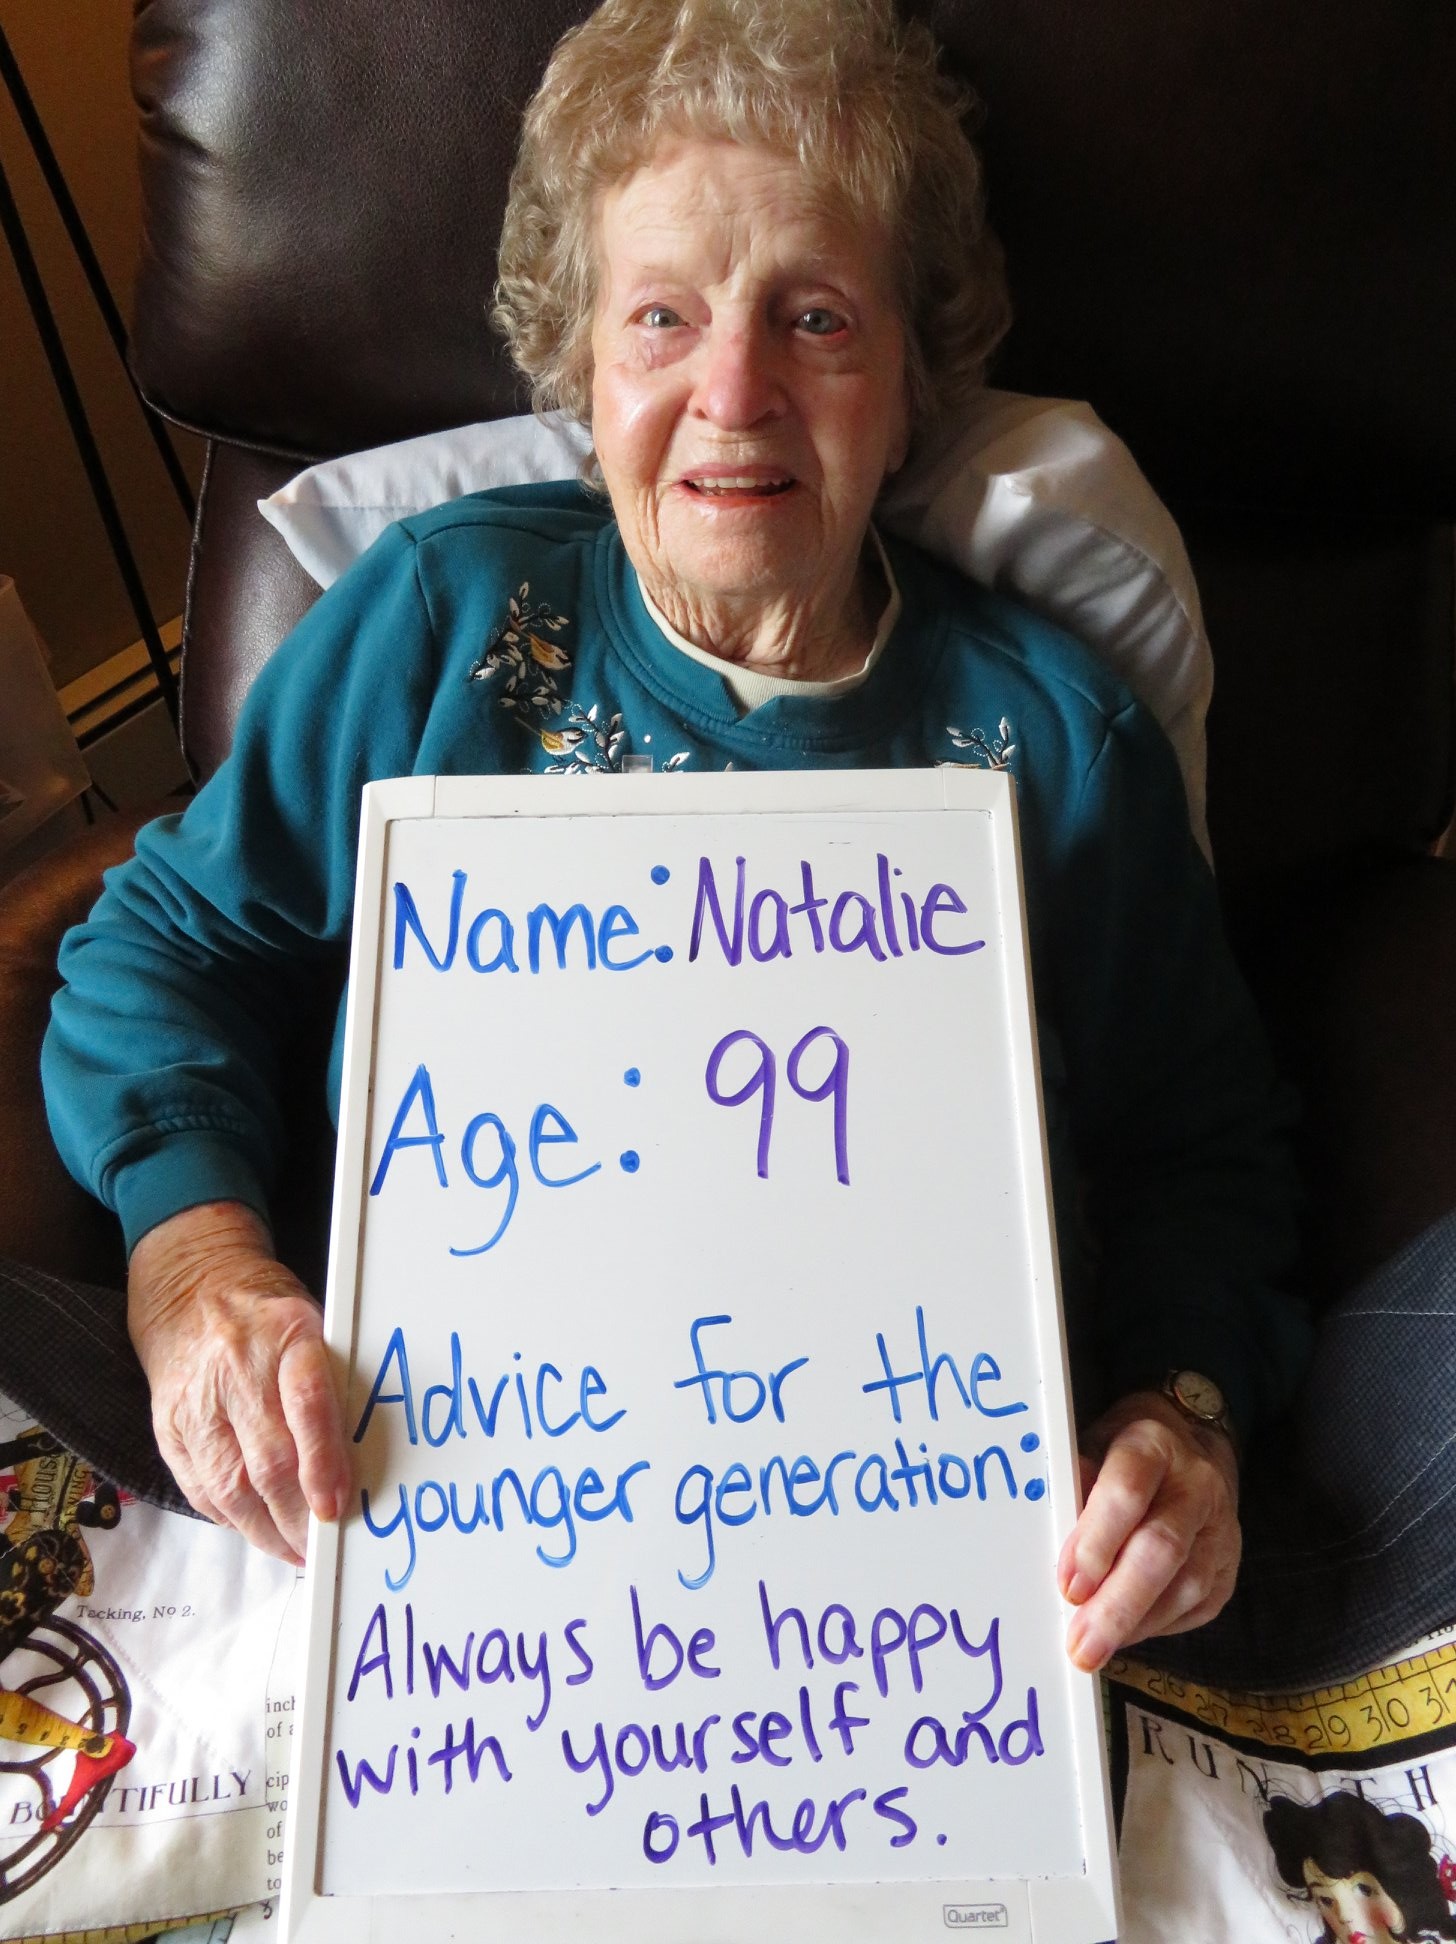 Name: Natalie
Age: 99
Advice for the
younger generation:
Always be happy
with yourself and
others.
Quartet
Tacking, No 2.
inch
of a
BOUNTIFULLY
cip
wo
of
be
to
3
26 27 28 29 30 31
RUN TH